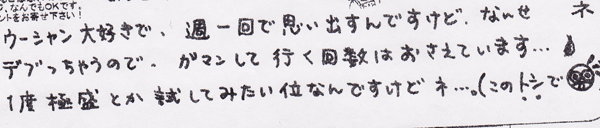 なんでもOKです。
ントをお寄せ下さい!
ウーシャン大好きで、週一回で思い出すんですけど、なんせ
デブっちゃうので、ガマンして行く回数はおさえています…
1度極盛とか試してみたい位なんですけどネ…。(このトシで
ネ